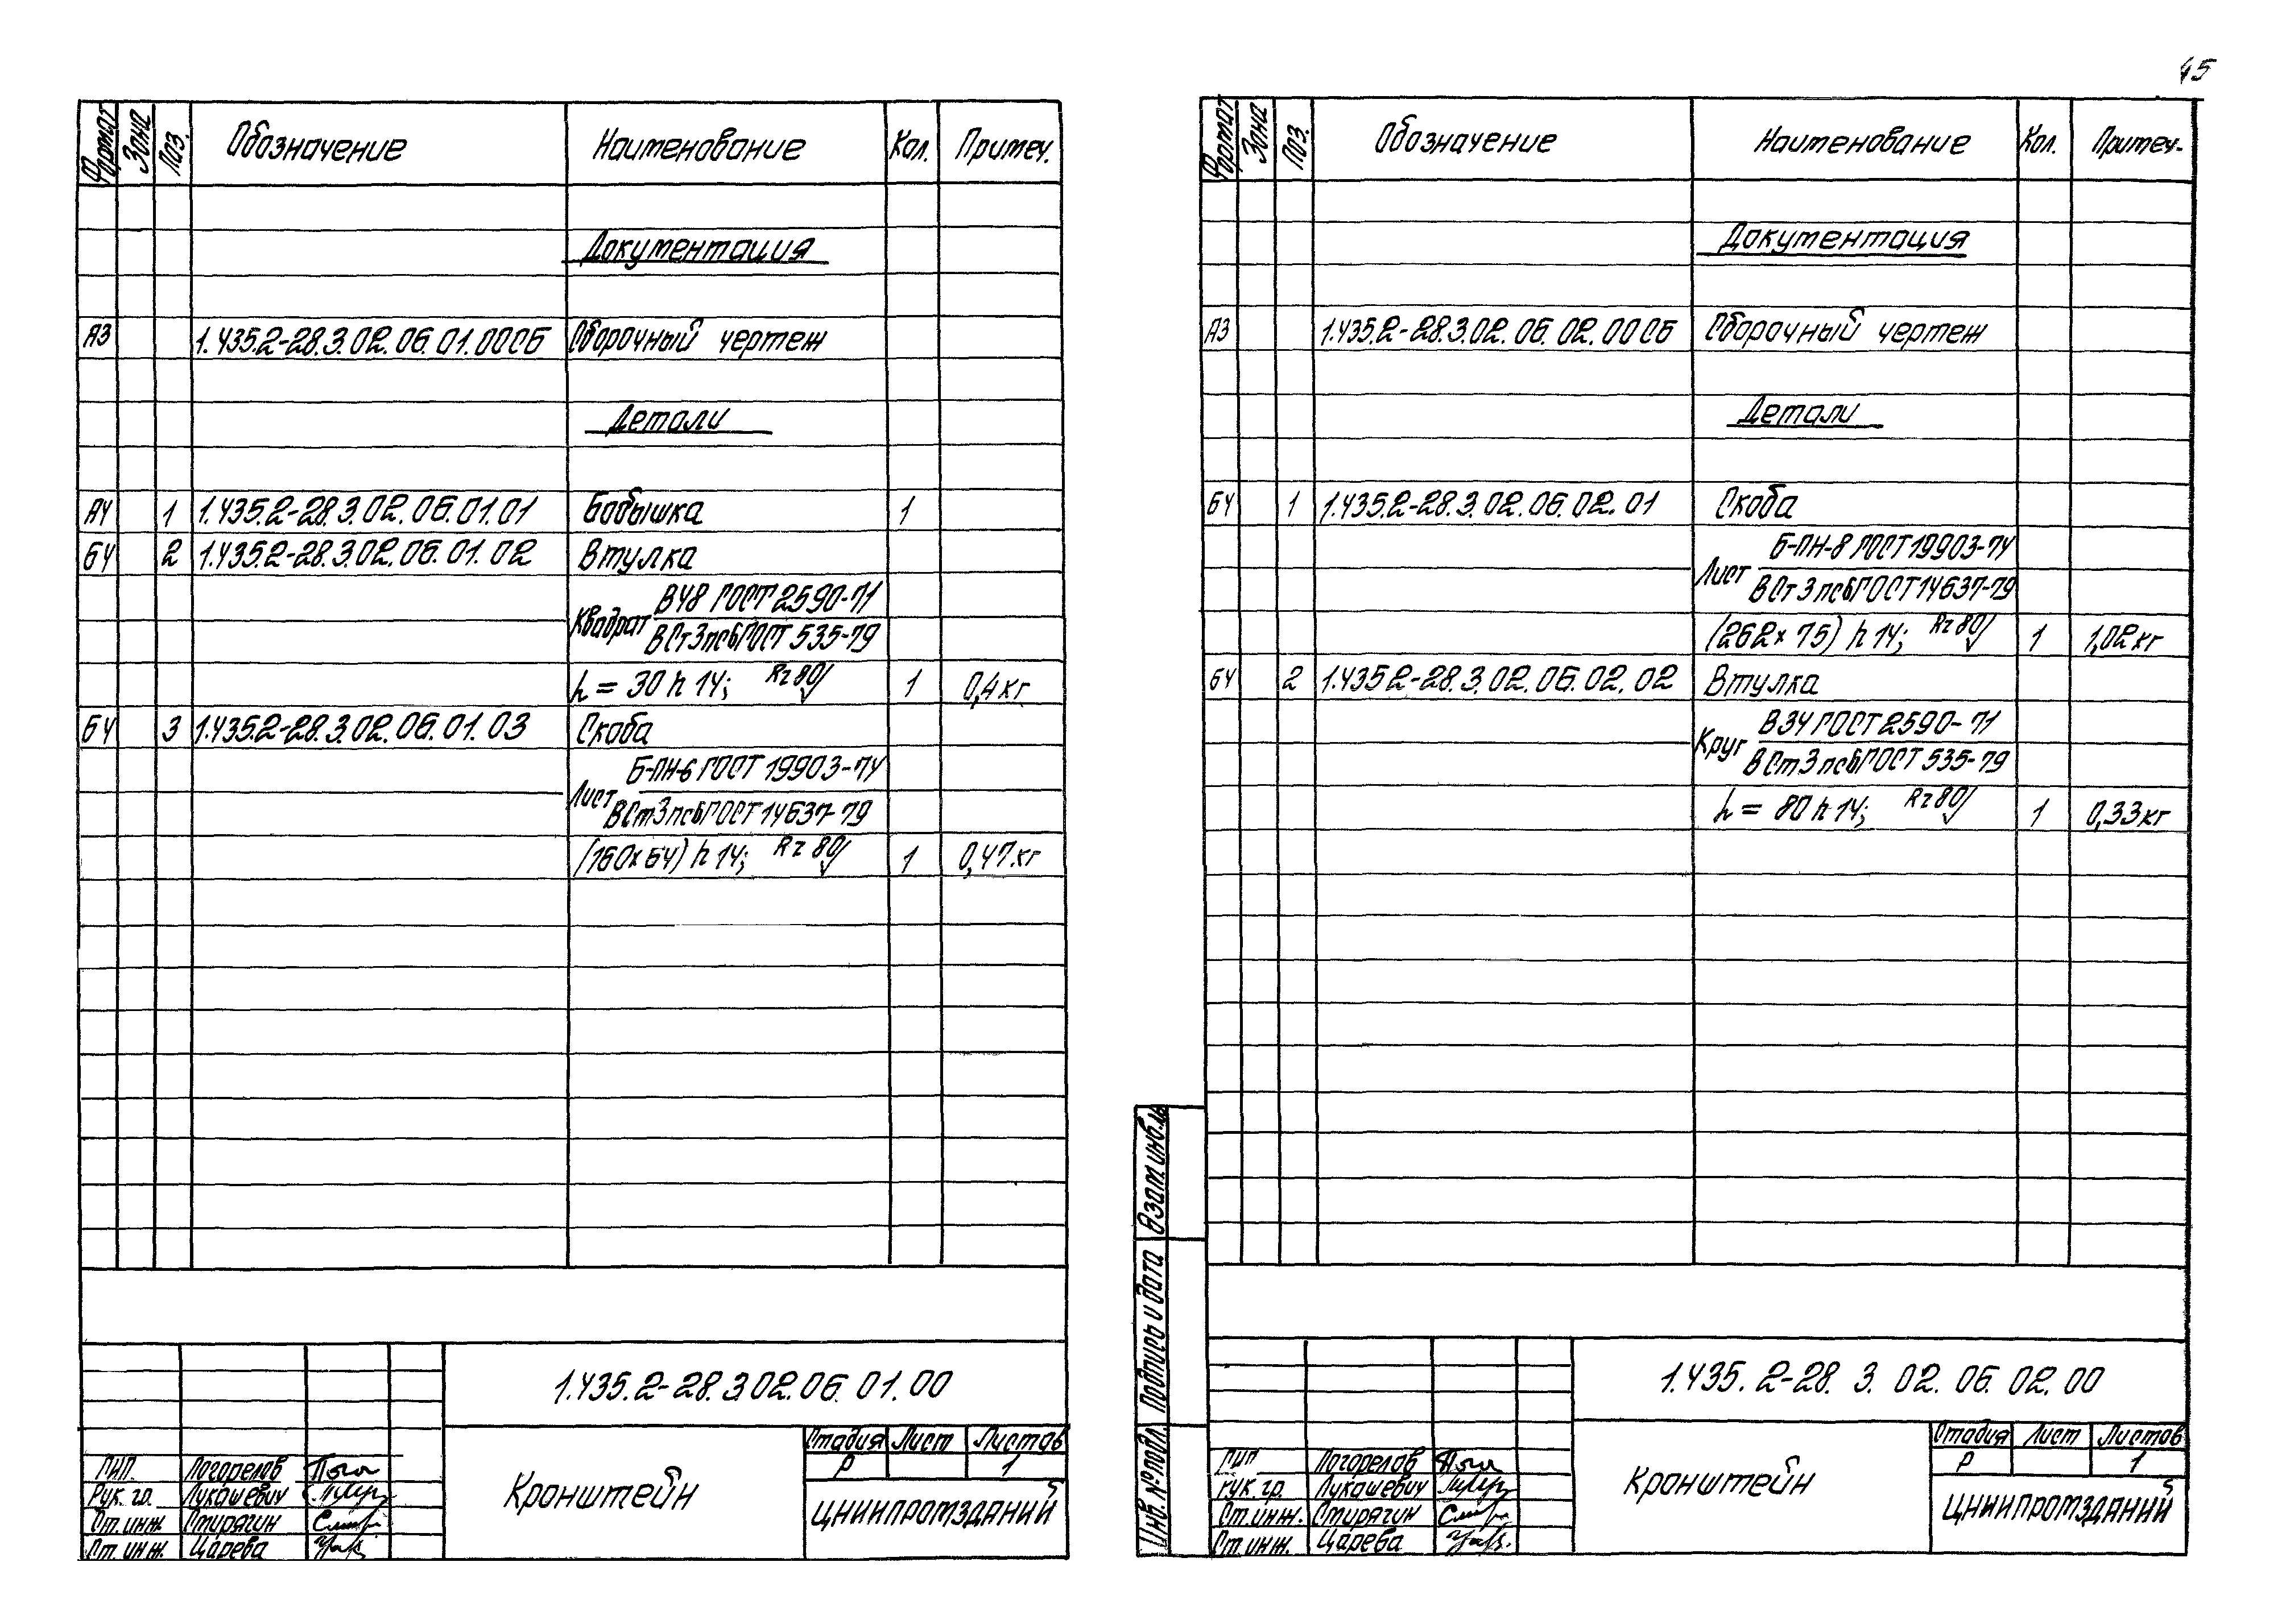 45
Формат Зона Поз. Обозначение Наименование Кол. Примеч.
Документация
А3 1.435.2-28.3.02.06.01.00СБ Сборочный чертеж
Детали
А4 1 1.435.2-28.3.02.06.01.01 Бобышка 1
БЧ 2 1.435.2-28.3.02.06.01.02 Втулка
В48 ГОСТ 2590-71
Квадрат
ВСт3пс6 ГОСТ 535-79
h = 30 h 14; Rz 80 1 0,4 кг
БЧ 3 1.435.2-28.3.02.06.01.03 Скоба
Б-ПН-6 ГОСТ 19903-74
Лист
ВСт3пс6 ГОСТ 14637-79
(160×64) h 14; Rz 80 1 0,47 кг
1.435.2-28.3.02.06.01.00
Кронштейн
Стадия Лист Листов
Р 1
ЦНИИПРОМЗДАНИЙ
ГИП. Погорелов
Рук. гр. Лукашевич
Ст. инж. Стирягин
Ст. инж. Царева
Формат Зона Поз. Обозначение Наименование Кол. Примеч.
Документация
А3 1.435.2-28.3.02.06.02.00СБ Сборочный чертеж
Детали
БЧ 1 1.435.2-28.3.02.06.02.01 Скоба
Б-ПН-8 ГОСТ 19903-74
Лист
ВСт3пс6 ГОСТ 14637-79
(262×75) h 14; Rz 80 1 1,02 кг
БЧ 2 1.435.2-28.3.02.06.02.02 Втулка
В34 ГОСТ 2590-71
Круг
ВСт3пс6 ГОСТ 535-79
h = 80 h 14; Rz 80 1 0,33 кг
Взам. инв. №
Подпись и дата
Инв. № подл.
1.435.2-28.3.02.06.02.00
Кронштейн
Стадия Лист Листов
Р 1
ЦНИИПРОМЗДАНИЙ
ГИП Погорелов
Рук. гр. Лукашевич
Ст. инж. Стирягин
Ст. инж. Царева